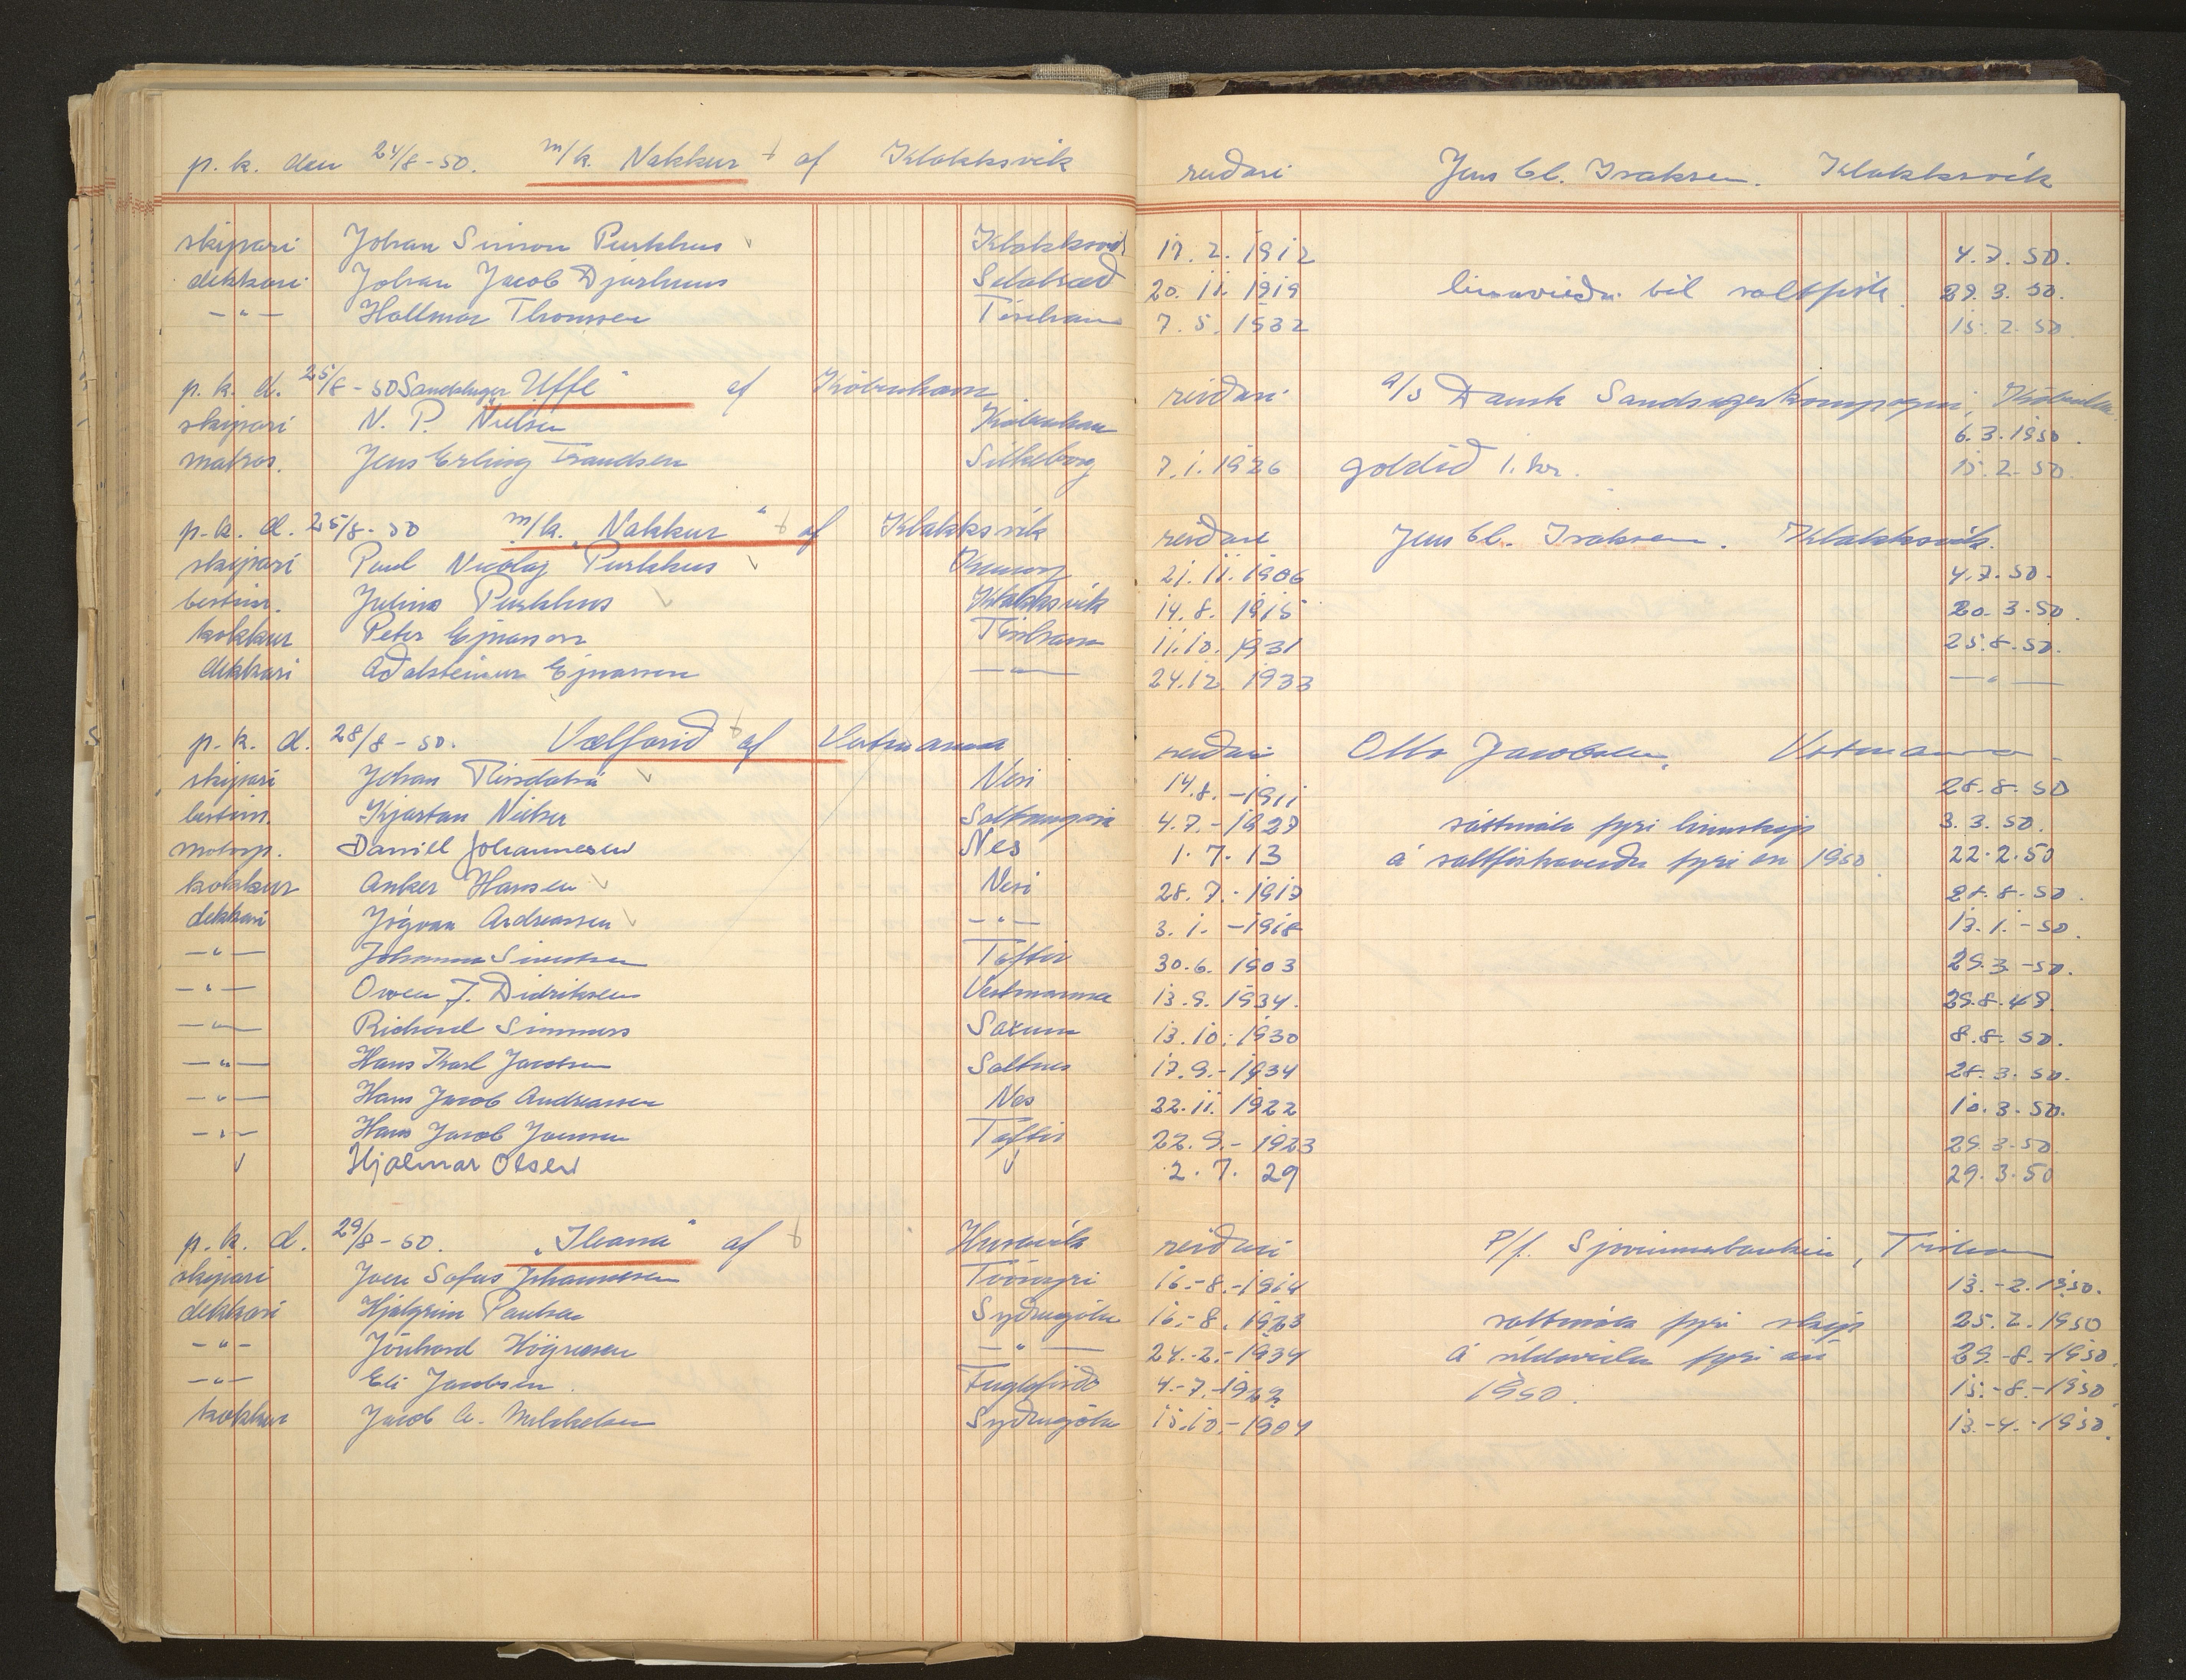 p. k. den 24/8-50. m/k. Nakkur af Klakksvík reiðari Jens Cl. Isaksen. Klakksvík
skipari Johan Simon Purkhus Klakksvík 17. 2. 1912 4. 7. 50.
dekkari Johan Jacob Djurhuus Selatrað 20. 11. 1919 línuveiðu til saltfisk 29. 3. 50.
-"- Hallmar Thomsen Tórshavn 7. 5. 1932 15. 2. 50
p. k. d. 25/8-50 Sandsuger „Uffe" af København reiðari A/S Dansk Sandsugerkompagni, Københn
skipari N. P. Nielsen København 6. 3. 1950.
matros. Jens Erling Frandsen Silkeborg 7. 1. 1926 goldið 1. kr. 15. 2. 50
p. k. d. 25/8-50 m/k. „Nakkur" af Klakksvík reiðari Jens Cl. Isaksen. Klakksvík.
skipari Paul Nicolaj Purkhus 21. 11. 1906 4. 7. 50.
bestim. Julius Purkhus Klakksvík 14. 8. 1915 20. 3. 50.
kokkur Peter Ejnarson Tórshavn 11. 10. 1931 25. 8. 50.
dekkari Aðalsteinur Ejnarson -"- 24. 12. 1933 -"-
p. k. d. 28/8-50. Vælferið af Vestmanna reiðari Otto Jacobsen, Vestmanna
skipari Johan Nesi 14. 8. -1911 28. 8. 50
bestim. Kjartan Nielsen Saltnangará 4. 7. -1927 sáttmála fyri línuskip 3. 3. 50.
motorp. Daniel Johannesen Nes 1. 7. 13 á saltfiskaveiðu fyri en 1950 22. 2. 50
kokkur Anker Hansen Nesi 28. 7. -1917 28. 8. 50.
dekkari Jógvan Andreassen -"- 3. 1. -1918 13. 1. -50.
-"- Johannes Simonsen Toftir 30. 6. 1903 29. 3. -50.
-"- Owen J. Didriksen Vestmanna 13. 9. 1934. 29. 8. 49
-"- Richard Simmers Saxun 13. 10. 1930 8. 8. 50.
-"- Hans Karl Jacobsen Saltnes 17. 9. -1934 28. 3. 50.
-"- Hans Jacob Andreassen Nes 22. 11. 1922 10. 3. 50.
-"- Hans Jacob Joensen Toftir 22. 9. -1923 29. 3. 50
√ Hjalmar Olsen √ 2. 7. 29 29. 3. 50
p. k. d. 29/8-50. „Ileana" af Húsavík reiðari P/f. Sjóvinnubankin, Tórshavn
skipari Joen Sofus Johannesen Tóvugri 16. -8. -1914 13. -2. 1950.
dekkari Hjalgrim Poulsen Syðrugøtu 16. -8. 1923 sáttmála fyri skip 25. 2. 1950
-"- Jónhard Høgnesen -"- 24. -2. -1934 á sildaveiðu fyri árið 29. -8. -1950.
-"- Eli Jacobsen. Fuglafirði 4. -7. -1922 1950. 15. -8. -1950
kokkur Jacob A. Mikkelsen Syðrugøtu 15. 10. -1904 13. -4. -1950.